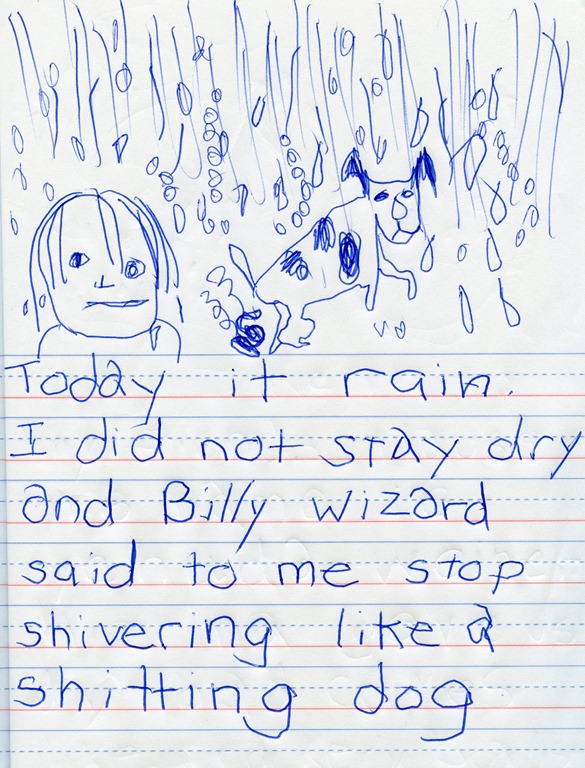 Today it rain.
I did not stay dry
and Billy wizard
said to me stop
shivering like a
shitting dog